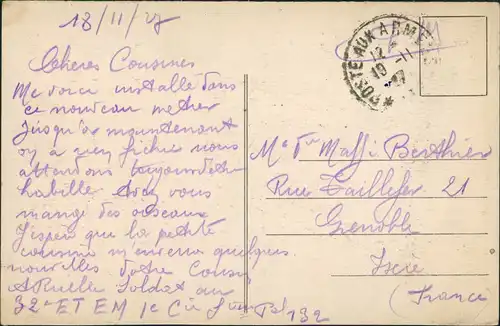 18/11/27
Cheres Cousines
Me voici installe dans
ce nouveau metier
jusqu'a maintenant
on a rien fichu nous
attendons toujours d'etre
habiller Avez vous
mangé des oiseaux
J'espere que la petite
cousine m'envera quelques
nouvelles Votre Cousin
A Ruelle Soldat au
32e ET EM 1e Cie Sur Pal 132
POSTE AUX ARMEES
12
19-11
27
Me Ve Massi Berthier
Rue Taillefer 21
Grenoble
Isere
(France)